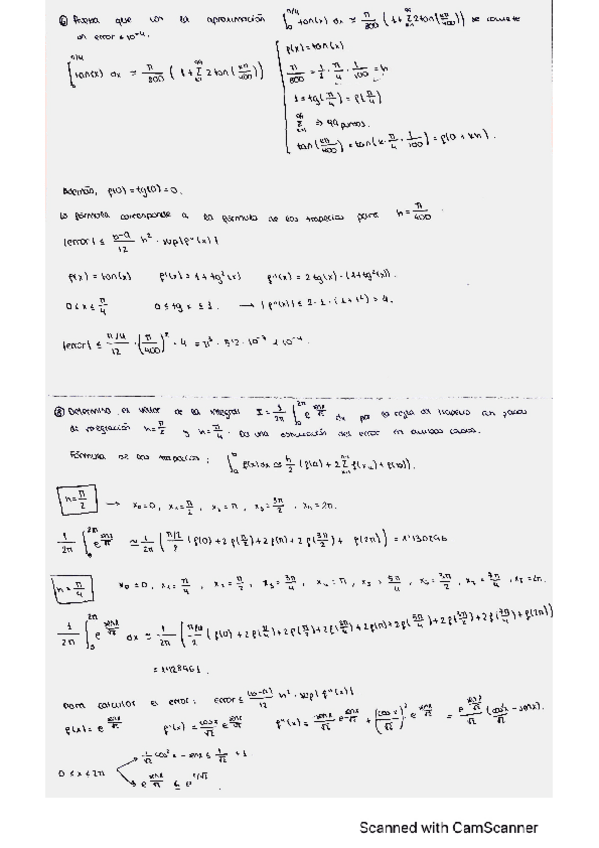 ⑥ Prueba que con la aproximación ∫₀^{π/4} tan(x) dx ≃ π/800 (1+Σ_{k=1}^{99} 2tan(kπ/400)) se comete
un error < 10⁻⁴.
∫₀^{π/4} tan(x) dx ≃ π/800 (1+Σ_{k=1}^{99} 2tan(kπ/400))
f(x)=tan(x)
π/800 = 1/2 · π/4 · 1/100 = h
1 = tg(π/4) = f(π/4)
Σ ⇒ 99 puntos.
tan(kπ/400) = tan(k·π/4·1/100) = f(0+kh).
Además, f(0)=tg(0)=0.
La fórmula corresponde a la fórmula de los trapecios para h=π/400.
|error| ≤ b-a/12 h² · sup|f''(x)|
f(x)=tan(x) f'(x)=1+tg²(x) f''(x)=2tg(x)·(1+tg²(x)).
0≤x≤π/4 0≤tg x≤1. → |f''(x)| ≤ 2·1·(1+1²)=4.
|error| ≤ π/4/12 · (π/400)² · 4 = π³ · 5'2·10⁻⁷ < 10⁻⁴.
⑧ Determina el valor de la integral I=1/2π ∫₀^{2π} e^{senx/√2} dx por la regla del trapecio con pasos
de integración h=π/2 y h=π/4. Da una estimación del error en ambos casos.
Fórmula de los trapecios: ∫ₐᵇ f(x)dx ≃ h/2 (f(a)+2Σ f(xₖ)+f(b)).
h=π/2 → x₀=0, x₁=π/2, x₂=π, x₃=3π/2, x₄=2π.
1/2π ∫₀^{2π} e^{senx/√2} ≃ 1/2π (π/2/2 (f(0)+2f(π/2)+2f(π)+2f(3π/2)+f(2π)) = 1'130296
h=π/4 x₀=0, x₁=π/4, x₂=π/2, x₃=3π/4, x₄=π, x₅=5π/4, x₆=3π/2, x₇=7π/4, x₈=2π.
1/2π ∫₀^{2π} e^{senx/√2} dx ≃ 1/2π (π/4/2 (f(0)+2f(π/4)+2f(π/2)+2f(3π/4)+2f(π)+2f(5π/4)+2f(3π/2)+2f(7π/4)+f(2π))
= 1'128961.
Para calcular el error: error ≤ (b-a)/12 h² · sup|f''(x)|
f(x)=e^{senx/√2} f'(x)=cosx/√2 e^{senx/√2} f''(x)=-senx/√2 e^{senx/√2} + (cosx/√2)² e^{senx/√2} = e^{senx/√2}/√2 (cos²x/√2 - senx).
0≤x≤2π
1/√2 cos²x - senx ≤ 1/√2 + 1
e^{senx/√2} ≤ e^{1/√2}
Scanned with CamScanner